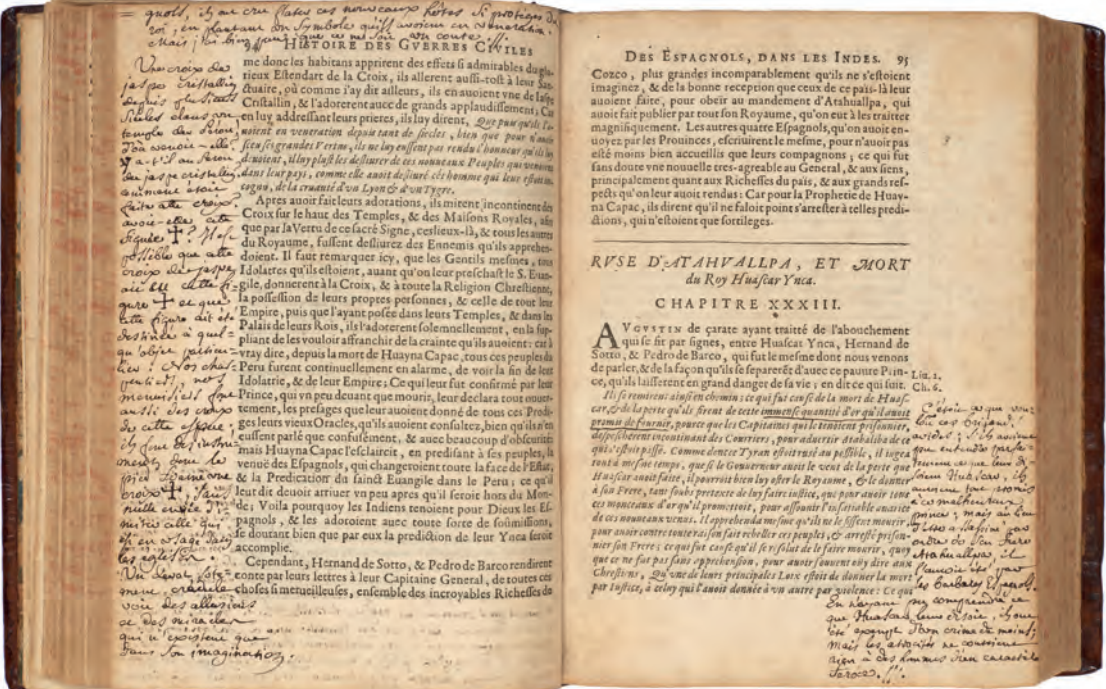 = quols, ils on cru flater ces nouveaux hôtes si protégés du
roi, en plantant un Symbole qu'ils avoient en vénération.
Mais j'ai bien peur que ce ne soit un conte.
HISTOIRE DES GVERRES CIVILES
me donc les habitans apprirent des effets si admirables du glo-
rieux Estendart de la Croix, ils allerent aussi-tost à leur San-
ctuaire, où comme i'ay dit ailleurs, ils en auoient vne de Iaspe
Cristallin, & l'adorerent auec de grands applaudissemens; Car
en luy addressant leurs prieres, ils luy dirent, Que puis qu'ils l'a-
uoient en veneration depuis tant de siecles, bien que pour n'auoir
sceu ses grandes Vertus, ils ne luy eussent pas rendu l'honneur qu'ils luy
deuoient, il luy plust les desliurer de ces nouueaux Peuples qui venoient
dans leur pays, comme elle auoit desliuré cét homme qui leur estoit in-
cognu, de la cruauté d'vn Lyon & d'vn Tygre.
Apres auoir fait leurs adorations, ils mirent incontinent des
Croix sur le haut des Temples, & des Maisons Royales, afin
que par la Vertu de ce sacré Signe, ces lieux-là, & tous les autres
du Royaume, fussent desliurez des Ennemis qu'ils apprehen-
doient. Il faut remarquer icy, que les Gentils mesmes, tous
Idolatres qu'ils estoient, auant qu'on leur preschast le S. Euan-
gile, donnerent à la Croix, & à toute la Religion Chrestienne,
la possession de leurs propres personnes, & celle de tout leur
Empire, puis que l'ayant posée dans leurs Temples, & dans les
Palais de leurs Rois, ils l'adorerent solemnellement, en la sup-
pliant de les vouloir affranchir de la crainte qu'ils auoient: car à
vray dire, depuis la mort de Huayna Capac, tous ces peuples du
Peru furent continuellement en alarme, de voir la fin de leur
Idolatrie, & de leur Empire; Ce qui leur fut confirmé par leur
Prince, qui vn peu deuant que mourir, leur declara tout ouuer-
tement, les presages que leur auoient donné de tous ces Prodi-
ges leurs vieux Oracles, qu'ils auoient consultez, bien qu'ils n'en
eussent parlé que confusément, & auec beaucoup d'obscurité:
mais Huayna Capac l'esclaircit, en predisant à ses peuples, la
venuë des Espagnols, qui changeroient toute la face de l'Estat,
& la Predication du sainct Euangile dans le Peru; ce qu'il
leur dit deuoir arriuer vn peu apres qu'il seroit hors du Mon-
de; Voila pourquoy les Indiens tenoient pour Dieux les Es-
pagnols, & les adoroient auec toute sorte de soûmissions,
se doutant bien que par eux la prediction de leur Ynca seroit
accomplie.
Cependant, Hernand de Sotto, & Pedro de Barco rendirent
conte par leurs lettres à leur Capitaine General, de toutes ces
choses si merueilleuses, ensemble des incroyables Richesses de
Une croix de
jaspe cristallin
depuis plusieurs
siècles dans un
temple du Pérou,
d'où venoit-elle?
y a-t'il au Pérou
du jaspe cristallin,
comment étoit
faite cette croix,
avoit-elle cette
figure †? Il est
possible que cette
croix de jaspe
ait eu cette fi-
gure † et que
cette figure ait été
destinée à quel-
qu'objet particu-
lier. Nos char-
pentiers, nos
menuisiers font
aussi des croix
de cette espèce;
ils font des instru-
ments dont le
pied
croix †, sans
nulle envie d'i-
miter celle qui
est en usage dans
les églises.
Un dévot
voit des allusions
et des miracles
qui n'existent que
dans son imagination.
DES ESPAGNOLS, DANS LES INDES. 95
Cozco, plus grandes incomparablement qu'ils ne s'estoient
imaginez, & de la bonne reception que ceux de ce païs-là leur
auoient faite, pour obeïr au mandement d'Atahuallpa, qui
auoit fait publier par tout son Royaume, qu'on eut à les traitter
magnifiquement. Les autres quatre Espagnols, qu'on auoit en-
uoyez par les Prouinces, escriuirent le mesme, pour n'auoir pas
esté moins bien accueillis que leurs compagnons; ce qui fut
sans doute vne nouuelle tres-agreable au General, & aux siens,
principalement quant aux Richesses du païs, & aux grands res-
pects qu'on leur auoit rendus: Car pour la Prophetie de Huay-
na Capac, ils dirent qu'il ne faloit point s'arrester à telles predi-
ctions, qui n'estoient que sortileges.
RVSE D'ATAHVALLPA, ET MORT
du Roy Huascar Ynca.
CHAPITRE XXXIII.
AVGVSTIN de çarate ayant traitté de l'abouchement
qui se fit par signes, entre Huascar Ynca, Hernand de
Sotto, & Pedro de Barco, qui fut le mesme dont nous venons
de parler, & de la façon qu'ils se separerẽt d'auec ce pauure Prin-
ce, qu'ils laisserent en grand danger de sa vie; en dit ce qui suit.
Liu. 2.
Ch. 6.
Ils se remirent ainsi en chemin: ce qui fut cause de la mort de Huas-
car, & de la perte qu'ils firent de cette immense quantité d'or qu'il auoit
promis de fournir, pource que les Capitaines qui le tenoient prisonnier,
despescherent incontinant des Courriers, pour aduertir Atabaliba de ce
qui s'estoit passé. Comme donc ce Tyran estoit rusé au possible, il iugea
tout à mesme temps, que si le Gouuerneur auoit le vent de la perte que
Huascar auoit faite, il pourroit bien luy oster le Royaume, & le donner
à son Frere, tant soubs pretexte de luy faire iustice, que pour auoir tous
ces monceaux d'or qu'il promettoit, pour assouuir l'insatiable auarice
de ces nouueaux venus. Il apprehenda mesme qu'ils ne le fissent mourir,
pour auoir contre toute raison fait rebeller ces peuples, & arresté prison-
nier son Frere; ce qui fut cause qu'il se résolut de le faire mourir, quoy
que ce ne fut pas sans apprehension, pour auoir souuent ouy dire aux
Chrestiens, Qu'vne de leurs principales Loix estoit de donner la mort
par Iustice, à celuy qui l'auoit donnée à vn autre par violence: Ce qui
C'étoit ce que vou-
loient ces brigands
avides; s'ils avoient
pu entendre parfai-
tement ce que leur di-
soit Huascar, ils
auroient tout promis
à ce malheureux
prince; mais au lieu
d'être assassiné par
ordre de son frère
Atahuallpa, il
l'auroit été par
les barbares Espagnols.
En n'ayant pu comprendre ce
que Huascar leur disoit, ils ont
été exempts d'un crime de moins;
mais les atrocités ne coutoient
rien à des hommes d'un caractère
féroce.